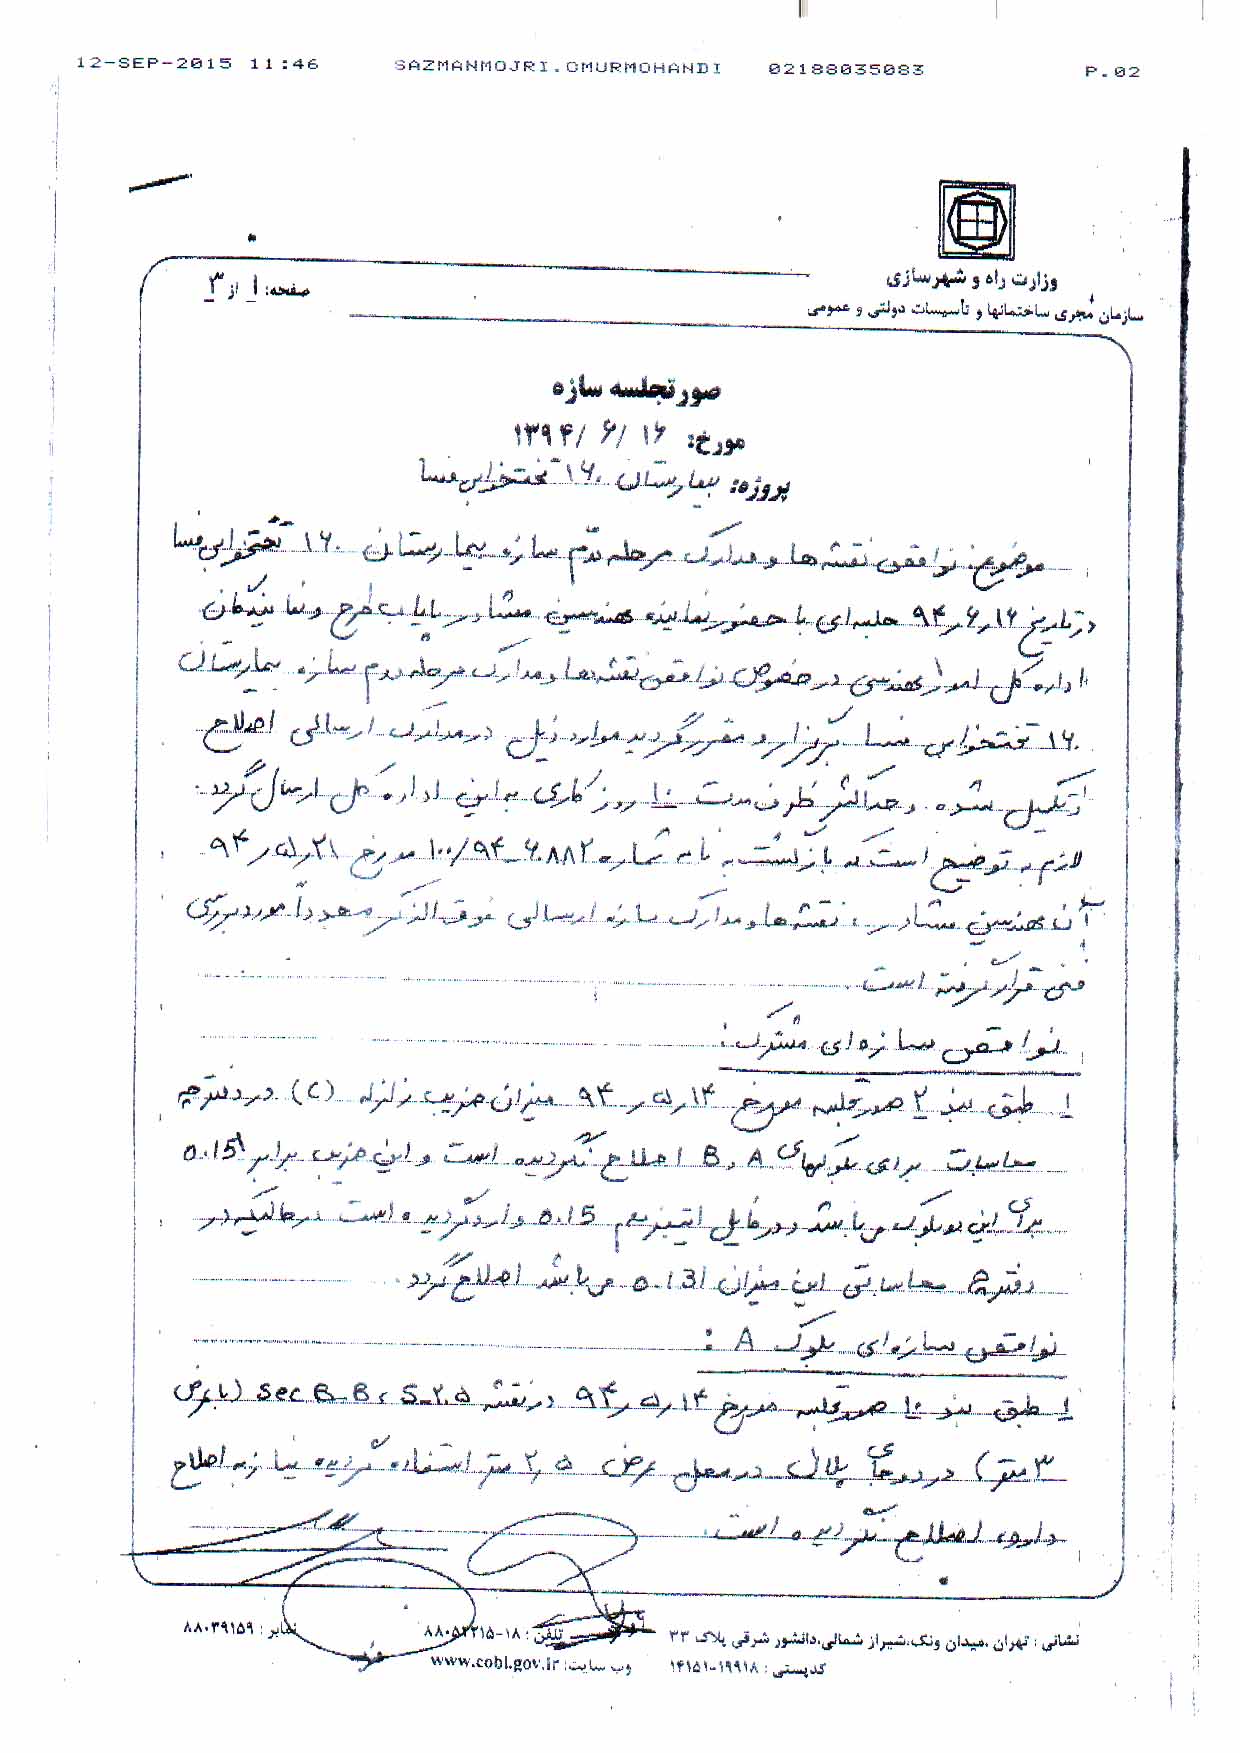 12-SEP-2015 11:46 SAZMANMOJRI.OMURMOHANDI 02188035083 P.02
وزارت راه و شهرسازی
سازمان مجری ساختمانها و تأسیسات دولتی و عمومی
صفحه: 1 از 3
صورتجلسه سازه
مورخ: ۱۳۹۴/ ۶/ ۱۶
پروژه: بیمارستان ۱۶۰ تختخوابی فسا
موضوع: نواقص نقشه ها و مدارک مرحله دوم سازه بیمارستان ۱۶۰ تختخوابی فسا
در تاریخ ۹۴٫۶٫۱۶ جلسه ای با حضور نماینده مهندسین مشاور پایاب طرح و نمایندگان
اداره کل امور مهندسی در خصوص نواقص نقشه ها و مدارک مرحله دوم سازه بیمارستان
۱۶۰ تختخوابی فسا برگزار و مقرر گردید موارد ذیل در مدارک ارسالی اصلاح
و تکمیل شده و حداکثر ظرف مدت ۱۰ روز کاری به این اداره کل ارسال گردد.
لازم به توضیح است که بازگشت به نامه شماره ۱۰۰/۹۴-۶۰۸۸۲ مورخ ۹۴٫۵٫۲۱
آن مهندسین مشاور، نقشه ها و مدارک سازه ارسالی فوق الذکر مجدداً مورد بررسی
فنی قرار گرفته است.
نواقص سازه ای مشترک:
۱ طبق بند ۲ صورتجلسه مورخ ۹۴٫۵٫۱۴ میزان ضریب زلزله (C) در دفترچه
محاسبات برای بلوکهای B , A اصلاح نگردیده است و این ضریب برابر 0.15
برای این دو بلوک می باشد و در فایل ایتبز هم 0.15 وارد گردیده است در حالیکه در
دفترچه محاسباتی این میزان 0.131 می باشد اصلاح گردد.
نواقص سازه ای بلوک A :
۱ طبق بند ۱۰ صورتجلسه مورخ ۹۴٫۵٫۱۴ در نقشه S-205 ، Sec B-B (با عرض
۳ متر) در دو جای پلان در محل عرض ۲٫۵ متر استفاده گردیده نیاز به اصلاح
دارد، اصلاح نگردیده است.
نشانی : تهران ،میدان ونک،شیراز شمالی،دانشور شرقی پلاک ۳۳ تلفن : ۱۸-۸۸۰۵۲۲۱۵ نمابر : ۸۸۰۳۹۱۵۹
کدپستی : ۱۹۹۱۸-۱۴۱۵۱ وب سایت: www.cobi.gov.ir